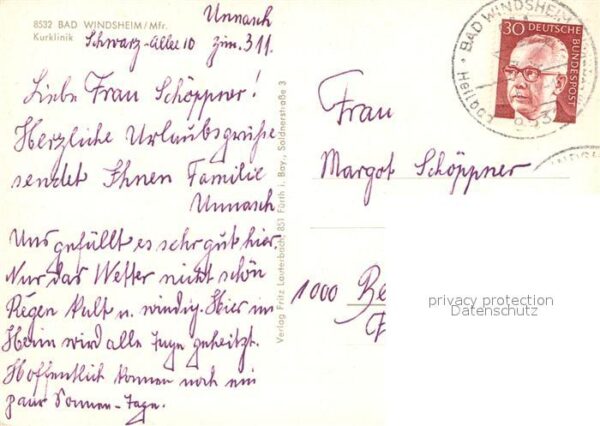 Unnasch
8532 BAD WINDSHEIM/Mfr.
Kurklinik
Schwarz-Allee 10 Zim. 311
Liebe Frau Schöppner!
Herzliche Urlaubsgrüsse
sendet Ihnen Familie
Unnasch
Uns gefällt es sehr gut hier.
Nur das Wetter nicht schön
Regen kalt u. windig. Hier im
Heim wird alle Tage geheitzt.
Hoffentlich kommen noch ein
paar Sonnen-Tage.
Verlag Fritz Lauterbach 851 Fürth i. Bay., Soldnerstraße 3
BAD WINDSHEIM
Heilquel
30
DEUTSCHE BUNDESPOST
Frau
Margot Schöppner
1000 Be
privacy protection
Datenschutz